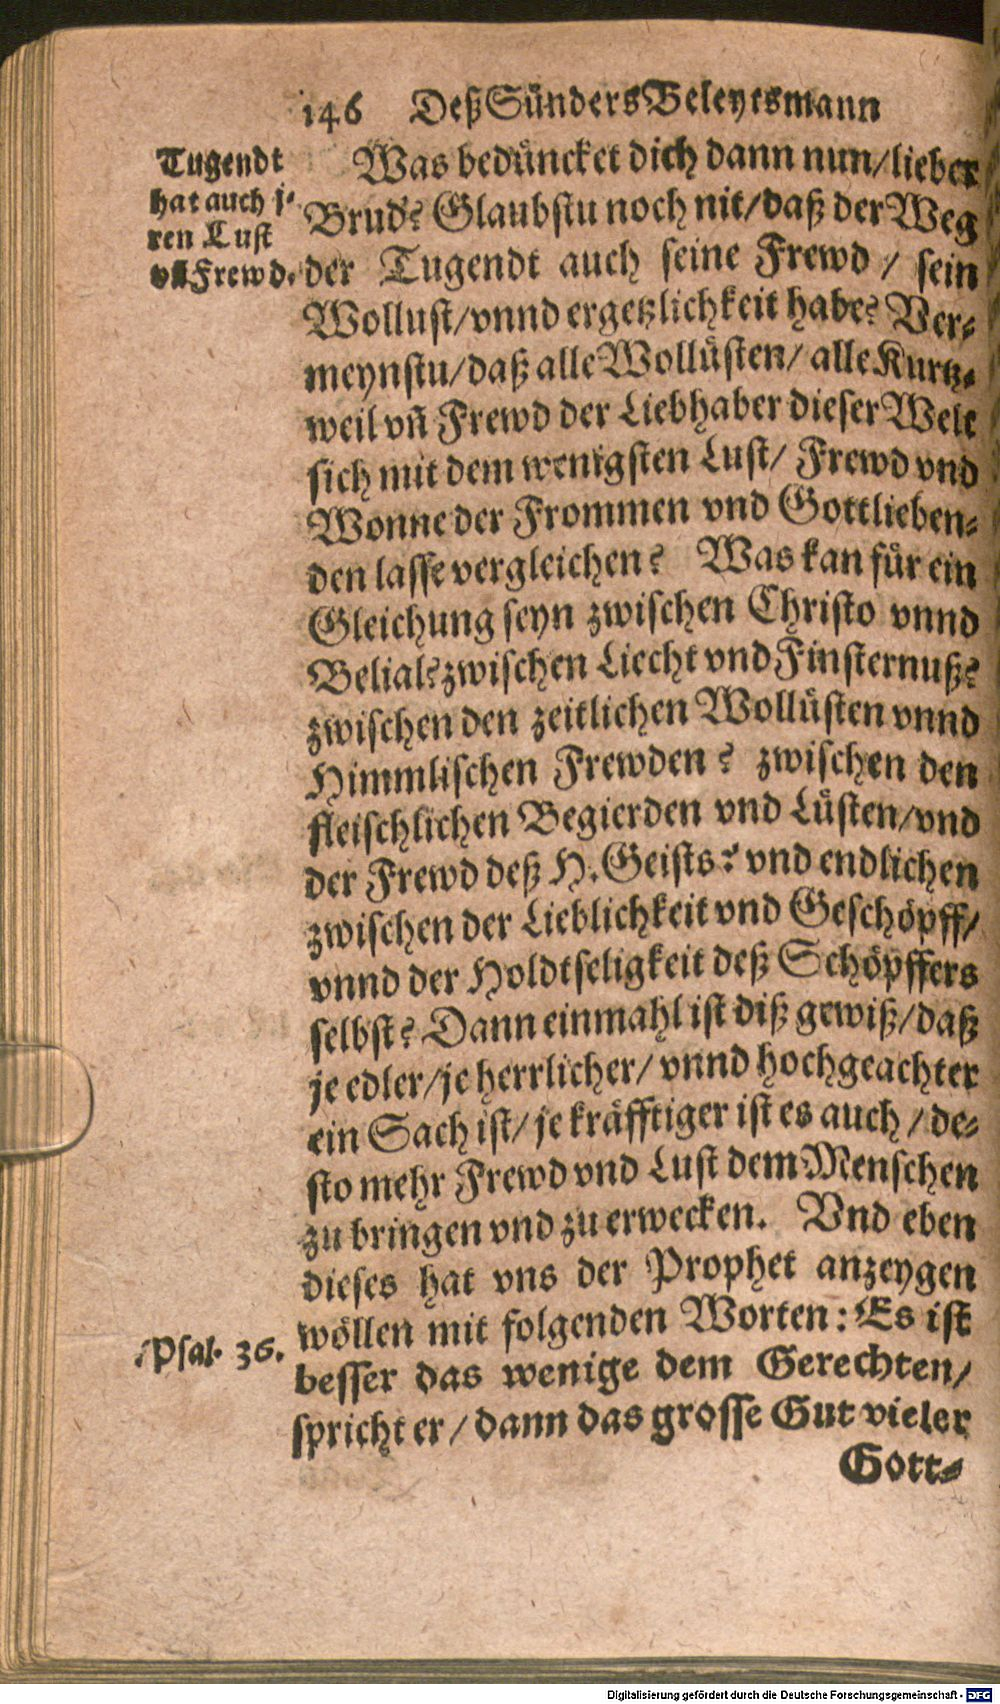 146 Deß Sünders Beleytsmann
Tugendt
hat auch j-
ren Lust
vñ Frewd.
Was bedüncket dich dann nun/ lieber
Brud'? Glaubstu noch nit/ daß der Weg
der Tugendt auch seine Frewd / sein
Wollust/ vnnd ergetzlichkeit habe? Ver-
meynstu/ daß alle Wollüsten/ alle Kurtz-
weil vñ Frewd der Liebhaber dieser Welt
sich mit dem wenigsten Lust/ Frewd vnd
Wonne der Frommen vnd Gottlieben-
den lasse vergleichen? Was kan für ein
Gleichung seyn zwischen Christo vnnd
Belial? zwischen Liecht vnd Finsternuß?
zwischen den zeitlichen Wollüsten vnnd
Himmlischen Frewden? zwischen den
fleischlichen Begierden vnd Lüsten/ vnd
der Frewd deß H. Geists? vnd endlichen
zwischen der Lieblichkeit vnd Geschöpff/
vnnd der Holdtseligkeit deß Schöpffers
selbst? Dann einmahl ist diß gewiß/ daß
je edler/ je herrlicher/ vnnd hochgeachter
ein Sach ist/ je kräfftiger ist es auch / de-
sto mehr Frewd vnd Lust dem Menschen
zu bringen vnd zu erwecken. Vnd eben
dieses hat vns der Prophet anzeygen
wöllen mit folgenden Worten: Es ist
Psal. 36.
besser das wenige dem Gerechten/
spricht er / dann das grosse Gut vieler
Gott-
Digitalisierung gefördert durch die Deutsche Forschungsgemeinschaft - DFG